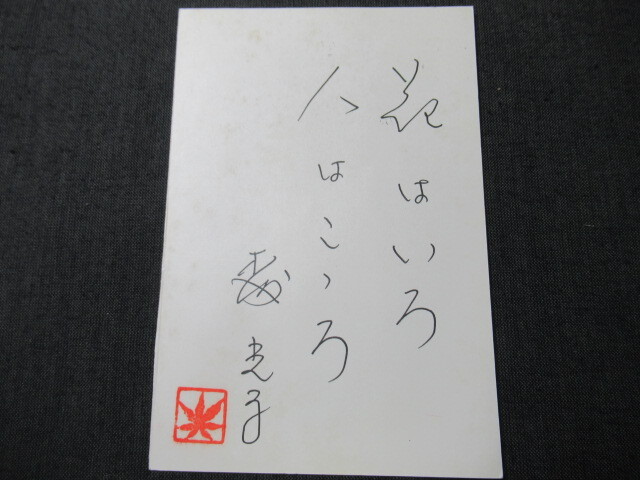 花はいろ
人はこゝろ
光子